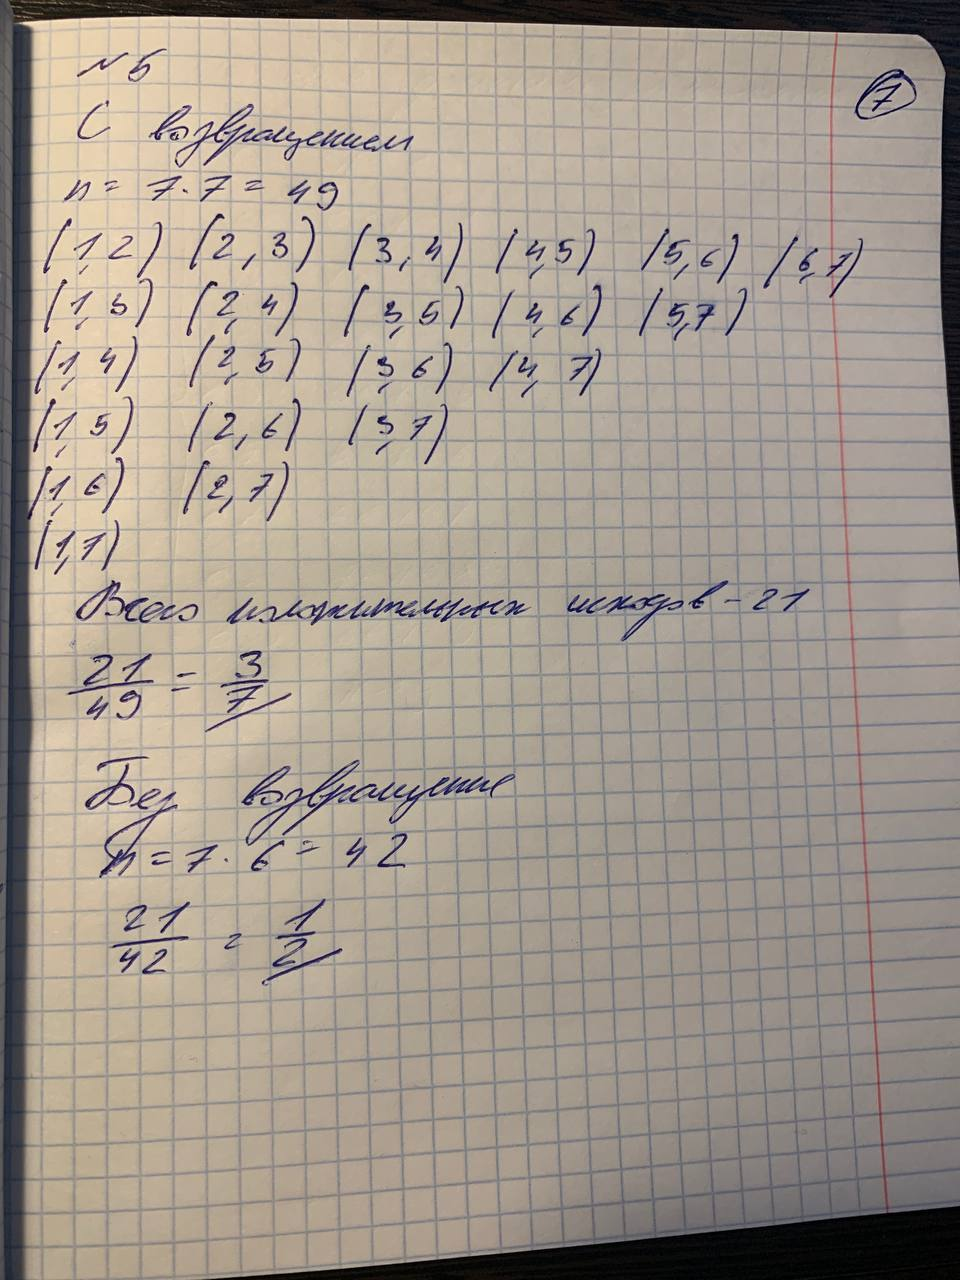 7
№5
С возвращением
n = 7·7 = 49
(1,2) (2,3) (3,4) (4,5) (5,6) (6,7)
(1,3) (2,4) (3,5) (4,6) (5,7)
(1,4) (2,5) (3,6) (4,7)
(1,5) (2,6) (3,7)
(1,6) (2,7)
(1,7)
Всего положительных исходов - 21
21/49 = 3/7
Без возвращение
n = 7·6 = 42
21/42 = 1/2